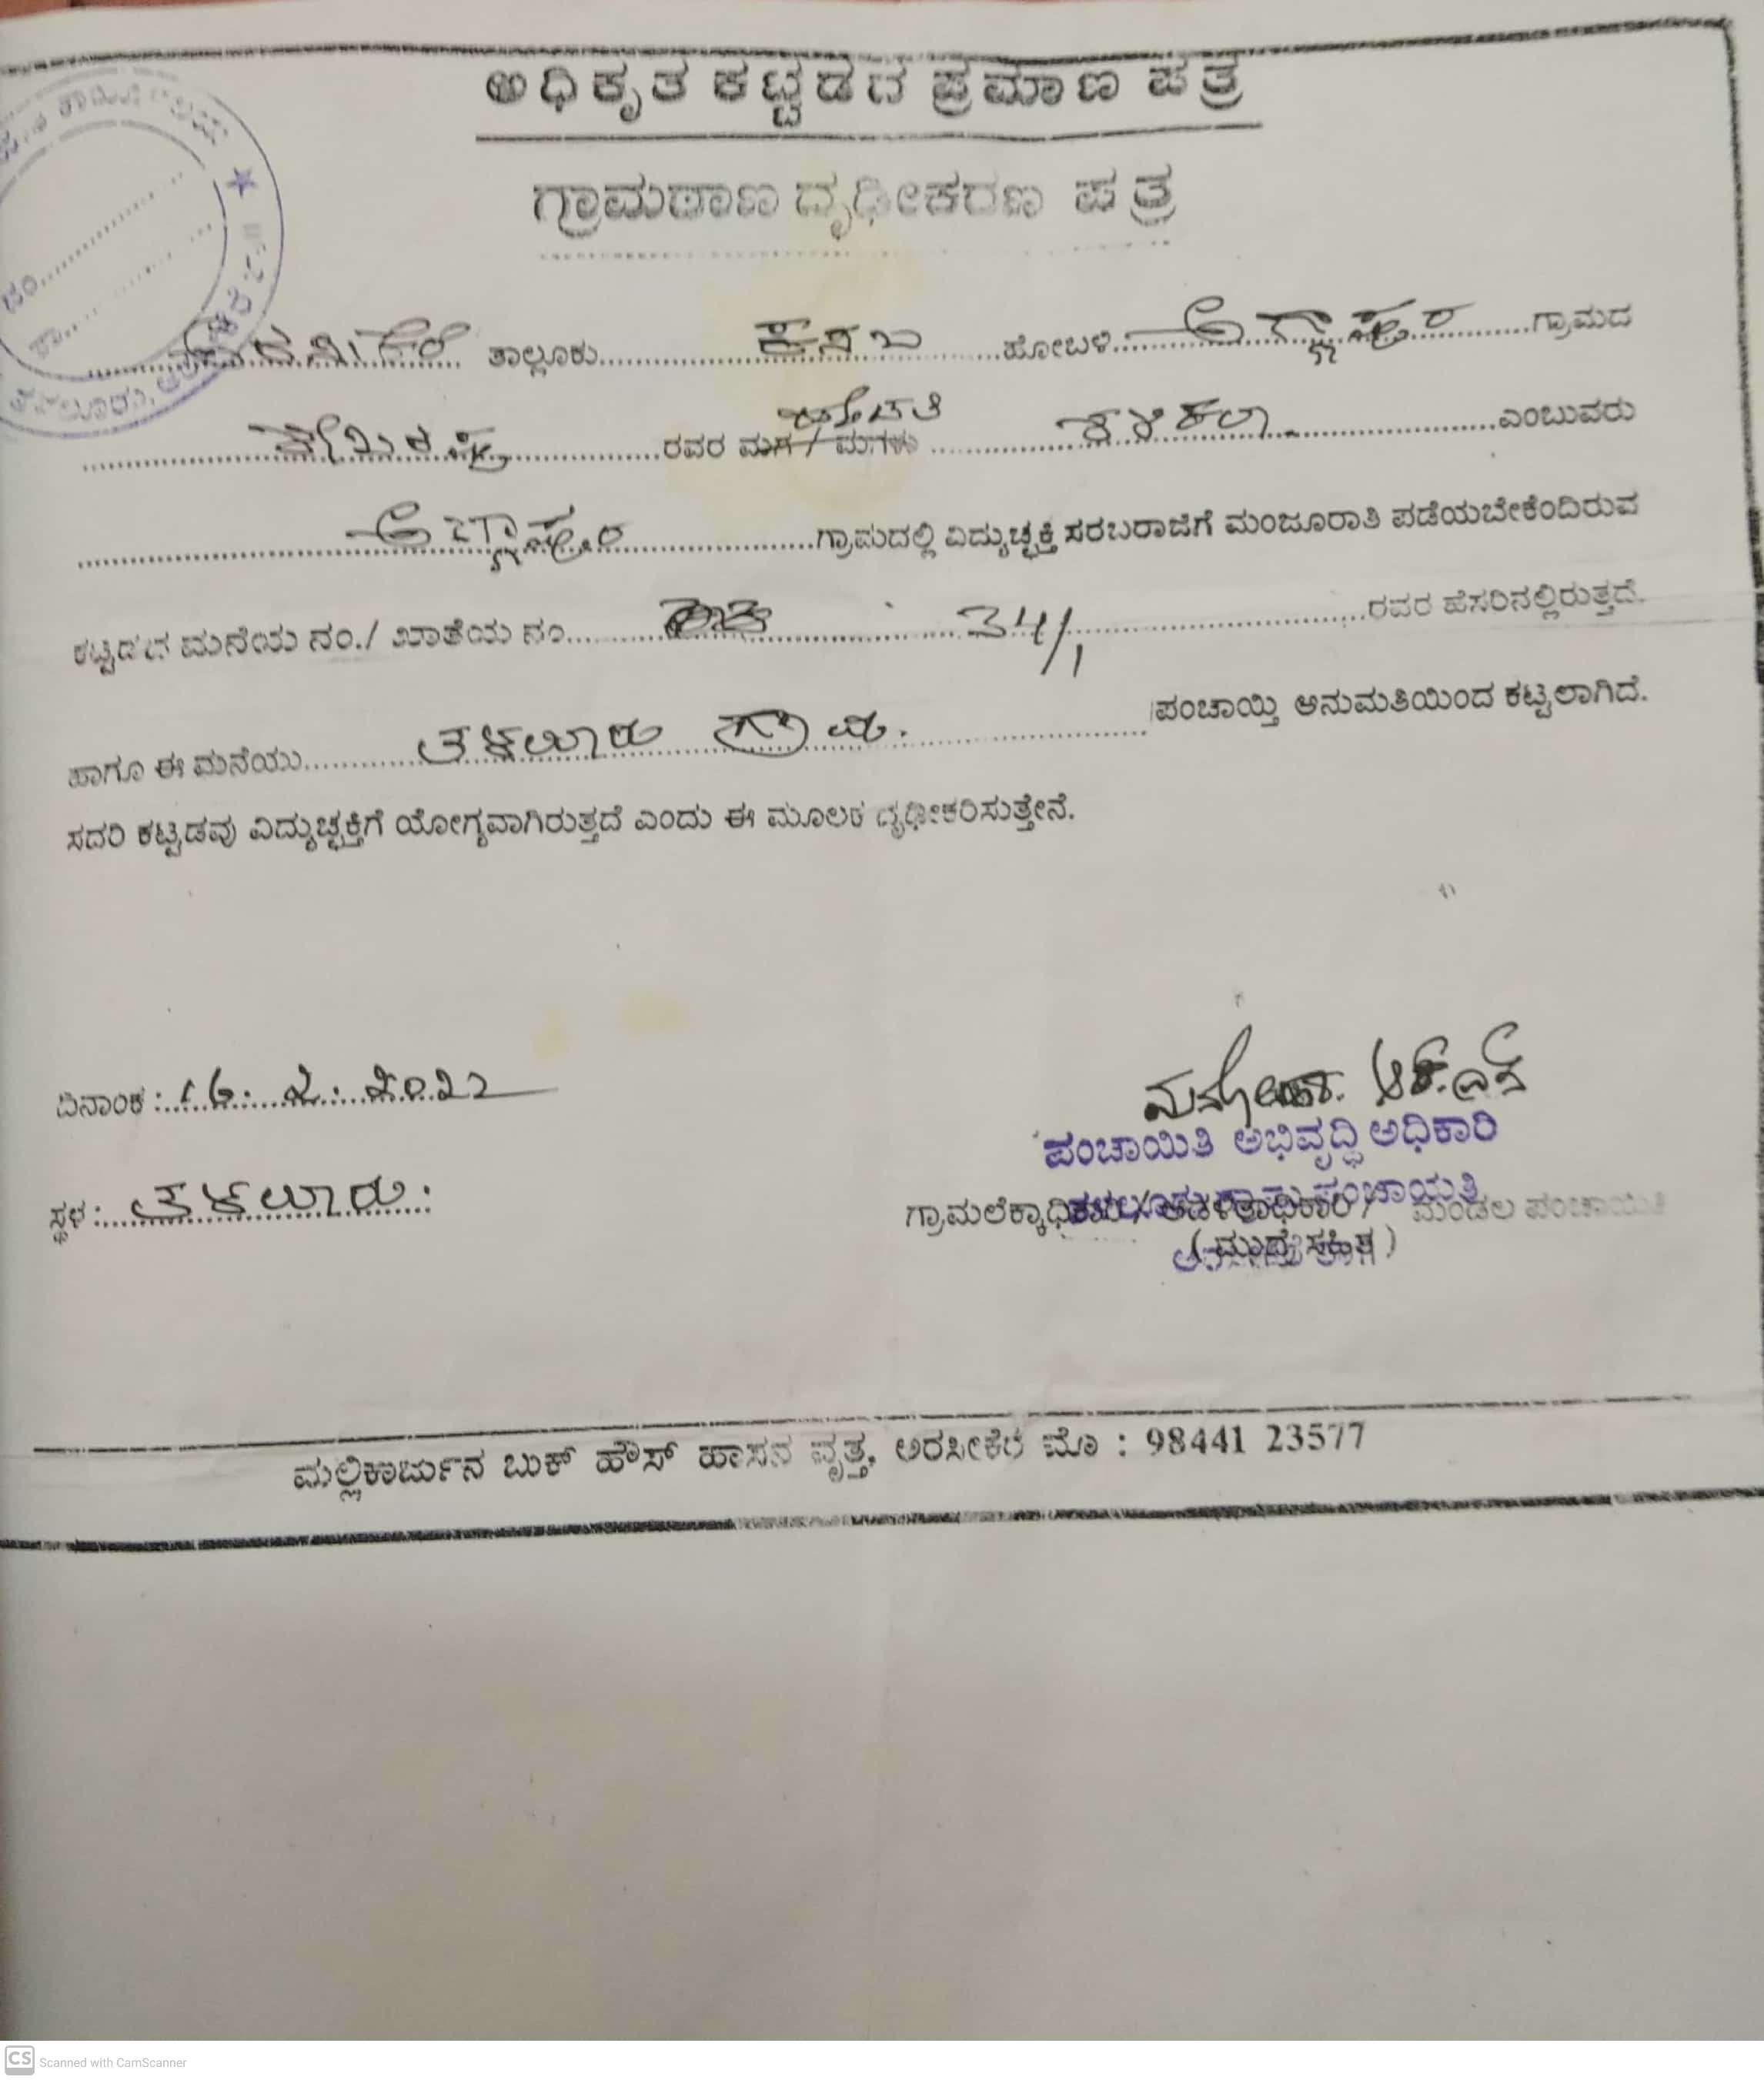 ಅಧಿಕೃತ ಕಟ್ಟಡದ ಪ್ರಮಾಣ ಪತ್ರ
ಗ್ರಾಮಠಾಣ ದೃಢೀಕರಣ ಪತ್ರ
ತಾಲ್ಲೂಕು ಕಸಬಾ ಹೋಬಳಿ ಅಗ್ಗುಂದ ಗ್ರಾಮದ
ರವರ ಮಗ / ಮಗಳು ಶಶಿಕಲಾ ಎಂಬುವರು
ಗ್ರಾಮದಲ್ಲಿ ವಿದ್ಯುಚ್ಛಕ್ತಿ ಸರಬರಾಜಿಗೆ ಮಂಜೂರಾತಿ ಪಡೆಯಬೇಕೆಂದಿರುವ
ಕಟ್ಟಡದ ಮನೆಯ ನಂ./ ಖಾತೆಯ ನಂ 34/1 ರವರ ಹೆಸರಿನಲ್ಲಿರುತ್ತದೆ.
ಹಾಗೂ ಈ ಮನೆಯು ತಳಲೂರು ಗ್ರಾ ಪಂ. ಪಂಚಾಯ್ತಿ ಅನುಮತಿಯಿಂದ ಕಟ್ಟಲಾಗಿದೆ.
ಸದರಿ ಕಟ್ಟಡವು ವಿದ್ಯುಚ್ಛಕ್ತಿಗೆ ಯೋಗ್ಯವಾಗಿರುತ್ತದೆ ಎಂದು ಈ ಮೂಲಕ ದೃಢೀಕರಿಸುತ್ತೇನೆ.
ದಿನಾಂಕ : 16. 2. 2022
ಪಂಚಾಯಿತಿ ಅಭಿವೃದ್ಧಿ ಅಧಿಕಾರಿ
ಸ್ಥಳ : ತಳಲೂರು.
ಗ್ರಾಮಲೆಕ್ಕಾಧಿಕಾರಿ / ಆಡಳಿತಾಧಿಕಾರಿ / ಮಂಡಲ ಪಂಚಾಯಿತಿ
( ಮುದ್ರೆ ಸಹಿತ )
ಮಲ್ಲಿಕಾರ್ಜುನ ಬುಕ್ ಹೌಸ್ ಹಾಸನ ವೃತ್ತ, ಅರಸೀಕೆರೆ ಮೊ : 98441 23577
CS Scanned with CamScanner